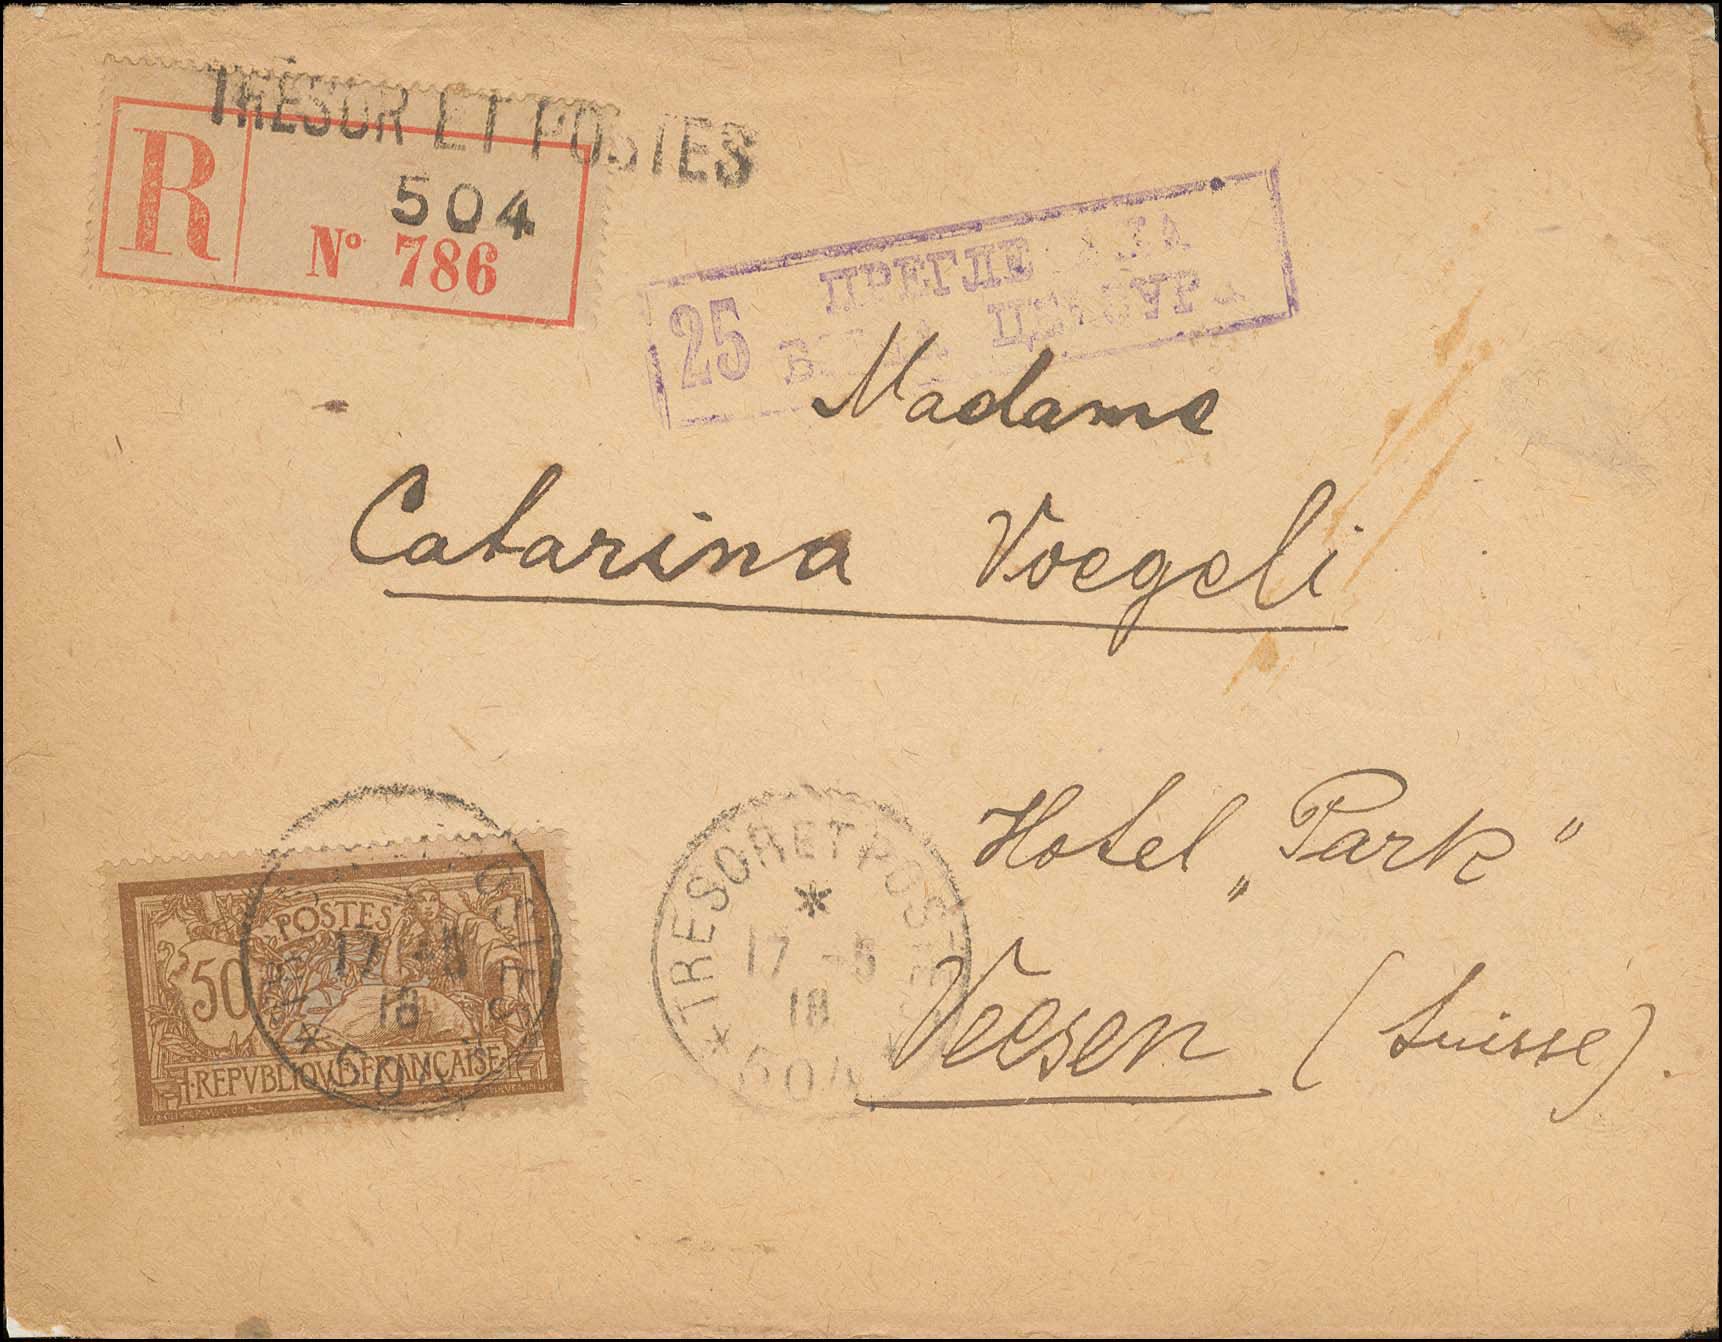 TRÉSOR ET POSTES
R
504
N° 786
25
Madame
Catarina Voegeli
Hotel „Park“
Veesen (Suisse).
POSTES
50
REPVBLIQUE FRANÇAISE
17 -5
18
504
TRESOR ET POSTES
17 -5
18
504